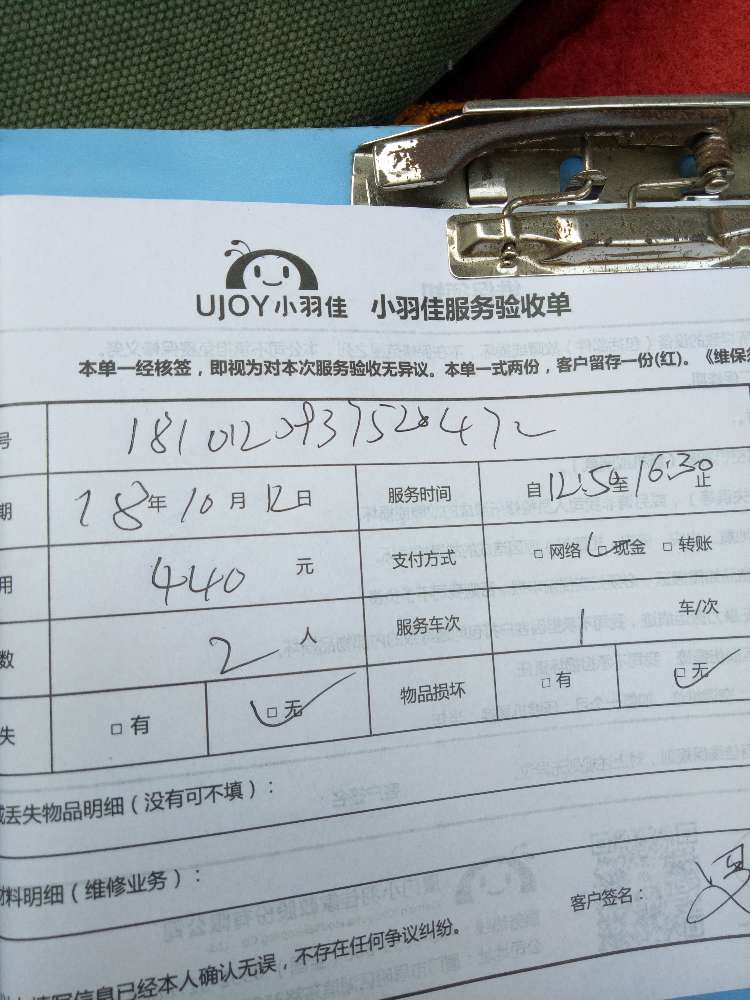 UJOY小羽佳 小羽佳服务验收单
本单一经核签，即视为对本次服务验收无异议。本单一式两份，客户留存一份(红)。《维保
号
期 18年10月12日 服务时间 自12:50至16:30止
用 440元 支付方式 □网络 □现金 □转账
数 2人 服务车次 1 车/次
失 □有 □无 物品损坏 □有 □无
丢失物品明细（没有可不填）：
料明细（维修业务）：
客户签名：
信息已经本人确认无误，不存在任何争议纠纷。